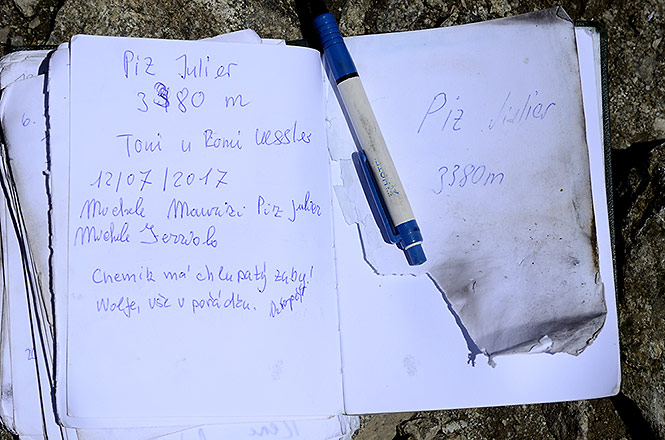 Piz Julier
3380 m
Toni u Romi
12/07/2017
Michele Maurizi Piz Julier
Michele
Chemik má chlupatý žáby!
Wolfe, vše v pořádku.
Piz Julier
3380m
6.